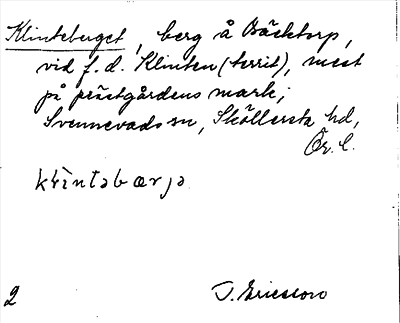 Klinteberget, berg å Bäcktorp,
vid f.d. Klinten (territ), mest
på prästgårdens mark;
Svennevads sn, Sköllersta hd,
Ör. l.
klìntəbærjə
2
T. Ericsson